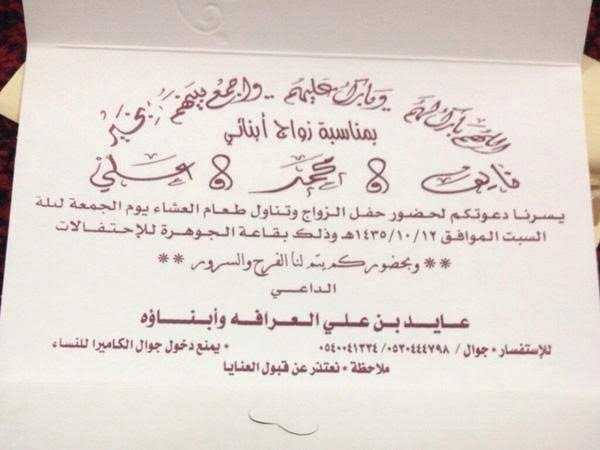 اللهم بارك لهم .. وبارك عليهم .. واجمع بينهم بخير
بمناسبة زواج أبنائي
فايع & محمد & علي
يسرنا دعوتكم لحضور حفل الزواج وتناول طعام العشاء يوم الجمعة ليلة
السبت الموافق ١٤٣٥/١٠/١٢هـ وذلك بقاعة الجوهرة للإحتفالات
** وبحضوركم يتم لنا الفرح والسرور **
الداعي
عايد بن علي العرافه وأبناؤه
للإستفسار * جوال / ٠٥٣٠٤٤٤٧٩٨ / ٠٥٤٠٠٤١٣٣٤ * يمنع دخول جوال الكاميرا للنساء
ملاحظة * نعتذر عن قبول العنايا